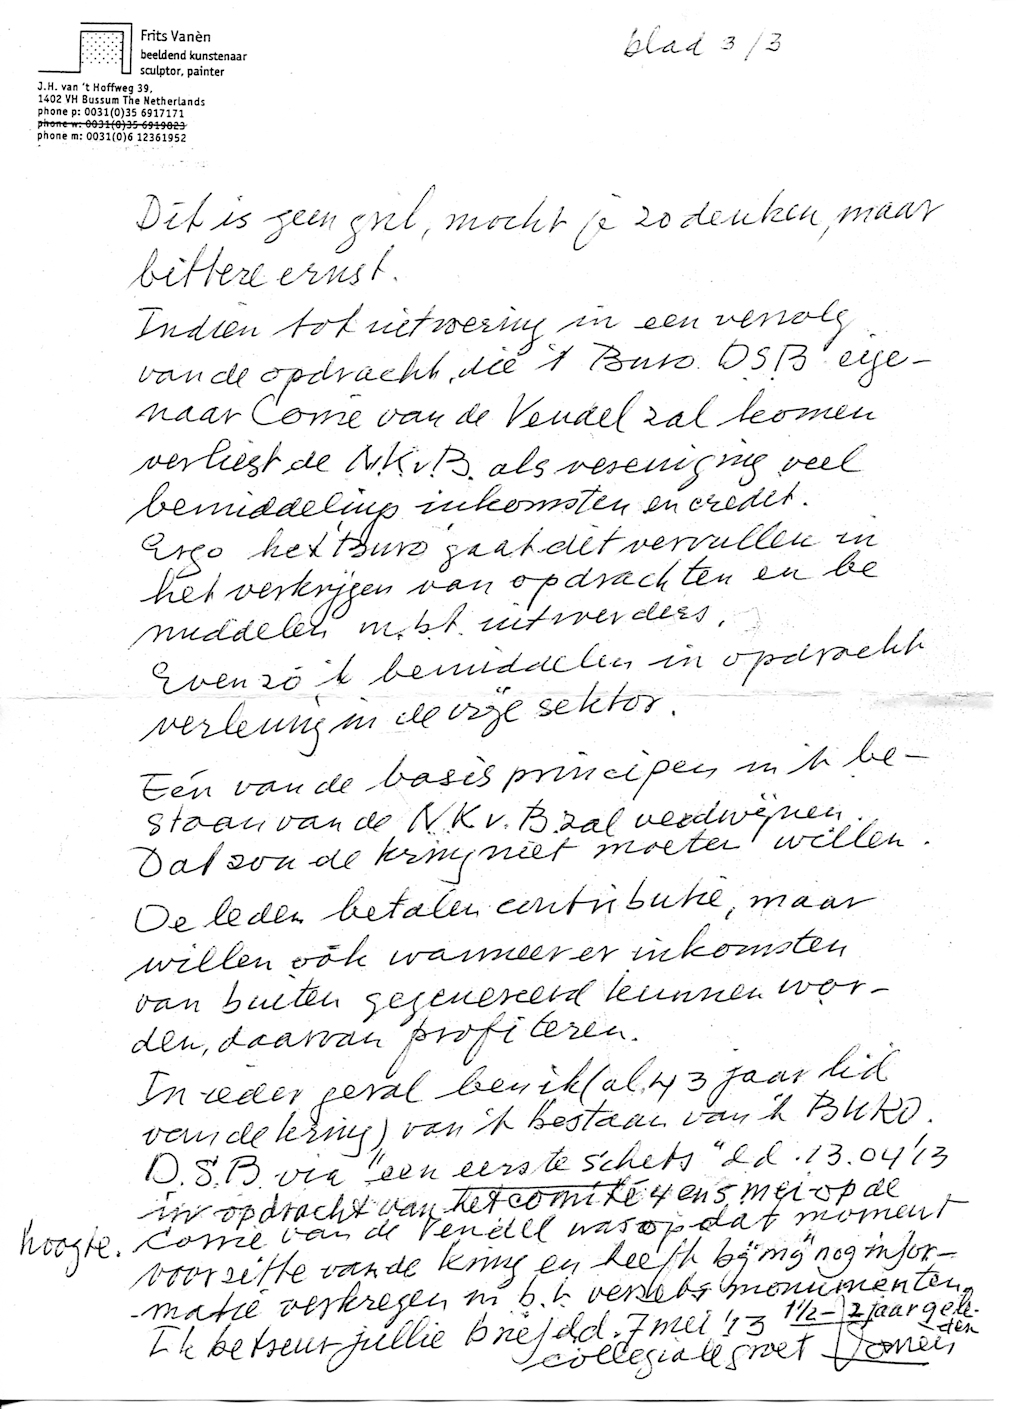 Frits Vanèn
beeldend kunstenaar
sculptor, painter
J.H. van 't Hoffweg 39,
1402 VH Bussum The Netherlands
phone p: 0031(0)35 6917171
phone w: 0031(0)35 6919823
phone m: 0031(0)6 12361952
blad 3/3
Dit is geen gril, mocht je zo denken, maar
bittere ernst.
Indien tot uitvoering in een vervolg
van de opdracht, die 't Buro D.S.B eige-
naar Corrie van de Vendel zal komen
verliest de N.K.v.B. als vereniging veel
bemiddelings inkomsten en credit.
Ergo het Buro gaat dit vervullen in
het verkrijgen van opdrachten en be
middelen m.b.t. uitvoerders.
Evenzo 't bemiddelen in opdracht
verlening in de vrije sektor.
Eén van de basis principen in 't be-
staan van de N.K.v.B zal verdwijnen.
Dat zou de kring niet moeten willen.
De leden betalen contributie, maar
willen oók wanneer er inkomsten
van buiten gegenereerd kunnen wor-
den, daarvan profiteren.
In ieder geval ben ik (al 43 jaar lid
van de kring) van 't bestaan van 't BURO.
D.S.B. via "een eerste schets" d.d. 13.04'13
in opdracht van het comité 4 en 5 mei op de
hoogte. Corrie van de Vendel was op dat moment
voorzitte van de kring en heeft bij "mij" nog infor-
matie verkregen m.b.t. verzets monumenten.
1½-2 jaar gele-
den
Ik betreur jullie brief d.d. 7 mei '13
collegiale groet